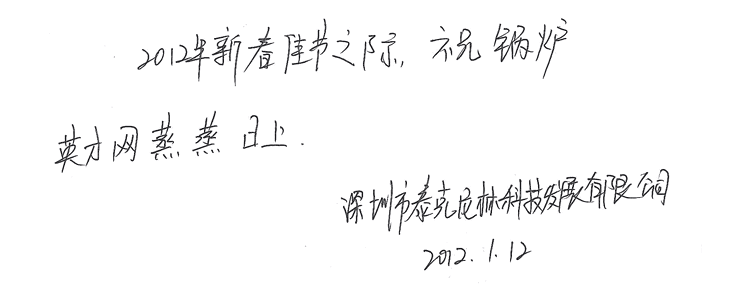 2012年新春佳节之际，祝锅炉
英才网蒸蒸日上.
深圳市泰克尼林科技发展有限公司
2012.1.12